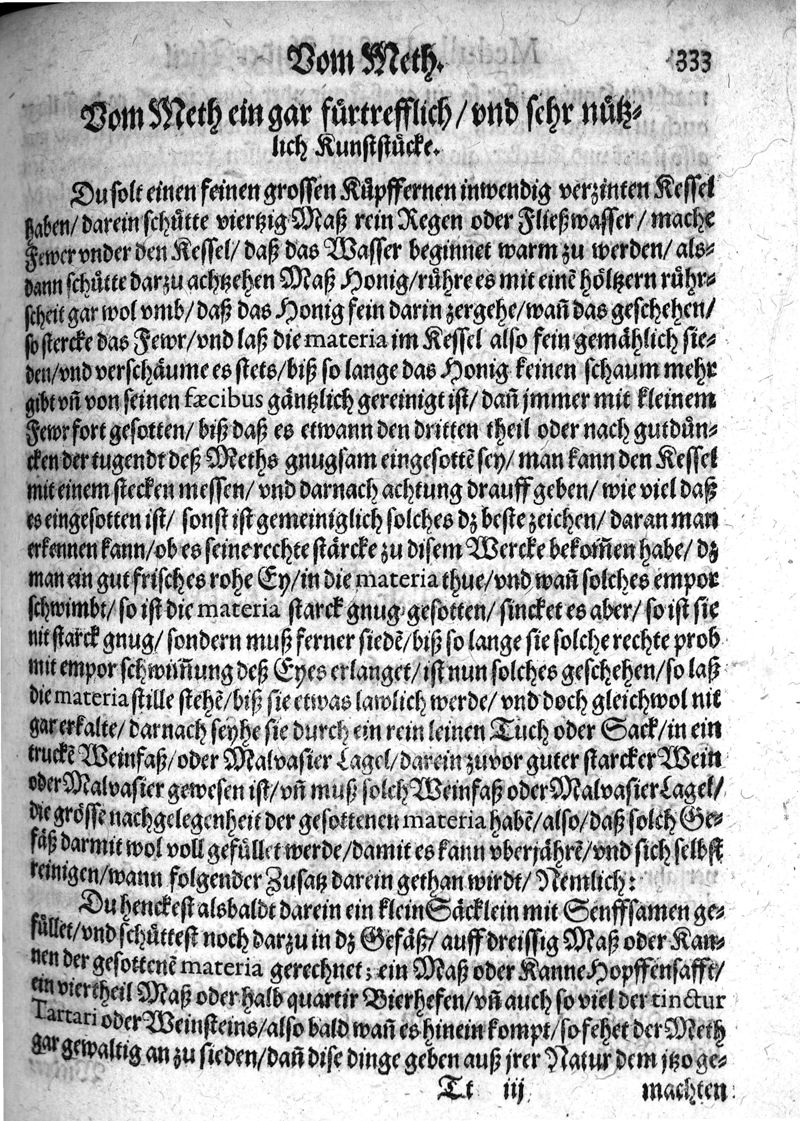 Vom Meth. 333
Vom Meth ein gar fürtrefflich/ vnd sehr nütz-
lich Kunststücke.
Du solt einen feinen grossen Küpffernen inwendig verzinten Kessel
haben/ darein schütte viertzig Maß rein Regen oder Fließwasser/ mache
Fewer vnder den Kessel/ daß das Wasser beginnet warm zu werden/ als-
dann schütte darzu achtzehen Maß Honig/ rühre es mit einē höltzern rühr-
scheit gar wol vmb/ daß das Honig fein darin zergehe/ wañ das geschehen/
so stercke das Fewr/ vnd laß die materia im Kessel also fein gemählich sie-
den/ vnd verschäume es stets/ biß so lange das Honig keinen schaum mehr
gibt vñ von seinen fæcibus gäntzlich gereinigt ist/ dañ jmmer mit kleinem
Fewr fort gesotten/ biß daß es etwann den dritten theil oder nach gutdün-
cken der tugendt deß Meths gnugsam eingesottē sey/ man kann den Kessel
mit einem stecken messen/ vnd darnach achtung drauff geben/ wie viel daß
es eingesotten ist/ sonst ist gemeiniglich solches dz beste zeichen/ daran man
erkennen kann/ ob es seine rechte stärcke zu disem Wercke bekom̄en habe/ dz
man ein gut frisches rohe Ey/ in die materia thue/ vnd wañ solches empor
schwimbt/ so ist die materia starck gnug gesotten/ sincket es aber/ so ist sie
nit starck gnug/ sondern muß ferner siedē/ biß so lange sie solche rechte prob
mit empor schwim̄ung deß Eyes erlanget/ ist nun solches geschehen/ so laß
die materia stille stehē/ biß sie etwas lawlich werde/ vnd doch gleichwol nit
gar erkalte/ darnach seyhe sie durch ein rein leinen Tuch oder Sack/ in ein
truckē Weinfaß/ oder Malvasier Lagel/ darein zuvor guter starcker Wein
oder Malvasier gewesen ist/ vñ muß solch Weinfaß oder Malvasier Lagel/
die grösse nachgelegenheit der gesottenen materia habē/ also/ daß solch Ge-
fäß darmit wol voll gefüllet werde/ damit es kann vberjährē/ vnd sich selbst
reinigen/ wann folgender Zusatz darein gethan wirdt/ Nemlich:
Du henckest alsbaldt darein ein klein Säcklein mit Senffsamen ge-
füllet/ vnd schüttest noch darzu in dz Gefäß/ auff dreissig Maß oder Kan-
nen der gesottenē materia gerechnet; ein Maß oder Kanne Hopffensafft/
ein viertheil Maß oder halb quartir Bierhefen/ vñ auch so viel der tinctur
Tartari oder Weinsteins/ also bald wañ es hinein kompt/ so fehet der Meth
gar gewaltig an zu sieden/ dañ dise dinge geben auß jrer Natur dem jtzo ge-
Tt iij machten